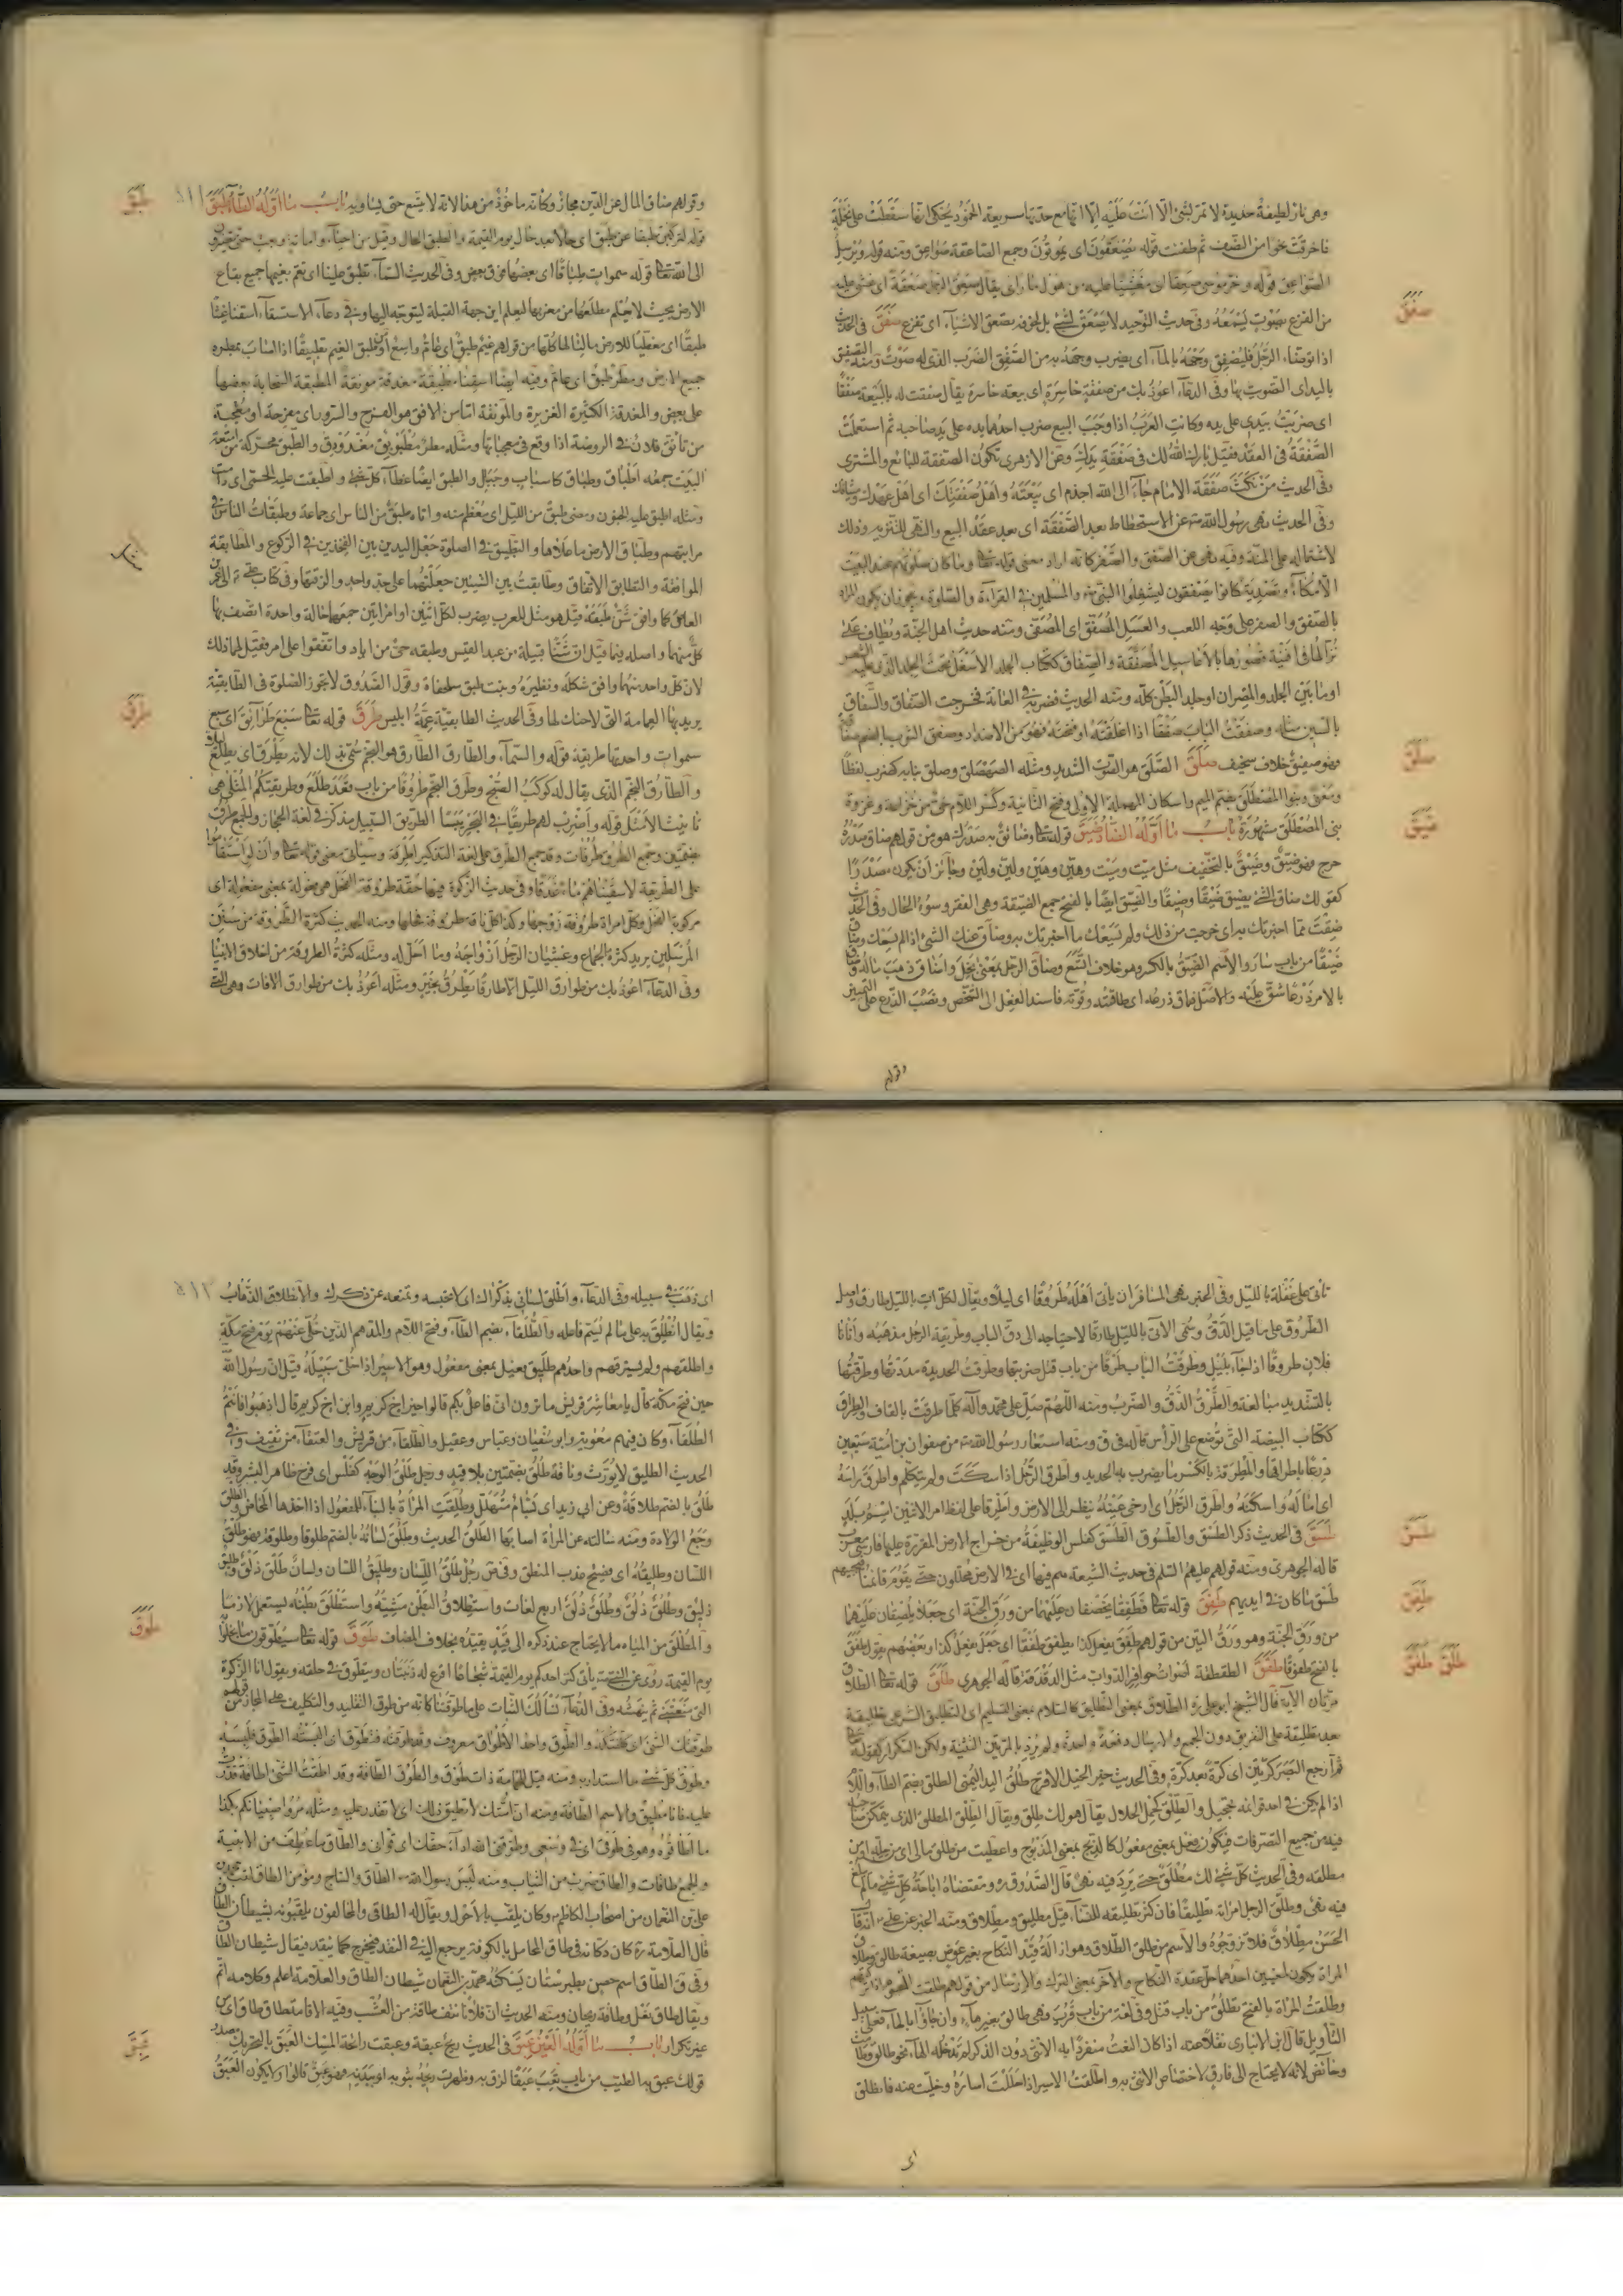 وهي نار لطيفة حديدة لا تمر بشئ الا اتت عليه الا انها مع حدتها سريعة الخمود يحكى انها سقطت على نخلة
فاحرقت نحوا من النصف ثم طفئت قوله يصعقون اى يموتون وجمع الصاعقة صواعق ومنه قوله ويرسل
الصواعق قوله وخر موسى صعقا اى مغشيا عليه من هول ما راى يقال صعق الرجل صعقة اى غشى عليه
من الفزع بصوت يسمعه وفى حديث التوحيد لا يصعق لشئ بل لخوفه يصعق الاشياء اى تفزع صفق فى الحديث
صفق
اذا توضأ الرجل فليصفق وجهه بالماء اى يضرب وجهه به من الصفق الضرب الذى له صوت ومنه التصفيق
باليد اى التصويت بها وفى الدعاء اعوذ بك من صفقة خاسرة اى بيعة خاسرة يقال صفقت له بالبيعة صفقا
اى ضربت بيدى على يده وكانت العرب اذا وجب البيع ضرب احدهما يده على يد صاحبه ثم استعملت
الصفقة فى العقد فقيل بارك الله لك فى صفقة يدك وعن الازهرى تكون الصفقة للبائع والمشترى
وفى الحديث من نكث صفقة الامام جاء الى الله اجذم اى بيعته واهل صفقتك اى اهل عهدك وميثاقك
وفى الحديث نهى رسول الله عن الاستحطاط بعد الصفقة اى بعد عقد البيع والنهى للتنزيه وذلك
لاشتماله على المنة وفيه نهى عن الصفق والصفر كانه اراد معنى قوله تعالى وما كان صلوتهم عند البيت
الا مكاء وتصدية كانوا يصفقون ليشغلوا النبى والمسلمين فى القراءة والصلوة ويجوز ان يكون المراد
بالصفق والصفر على وجه اللعب والعسل المصفق اى المصفى ومنه حديث اهل الجنة ويطاف على
نزالها فى افنية قصورها بالاعاسيل المصفقة والصفاق ككتاب الجلد الاسفل تحت الجلد الذى عليه الشعر
او ما بين الجلد والمصران او جلد البطن كله ومنه الحديث فضربه فى العانة فخرجت الصفاق والسفاق
بالسين مثله وصفقت الباب صفقا اذا اغلقته او فتحته فهو من الاضداد وصفق الثوب بالضم
فهو صفيق خلاف سخيف صلق الصلق هو الصوت الشديد ومثله الصهصلق وصلق بنابه كضرب لفظا
صلق
ومعنى وبنو المصطلق بضم الميم واسكان المهملة الاولى وفتح الثانية وكسر اللام حى من خزاعة وغزوة
بنى المصطلق مشهورة باب ما اوله الضاد ضيق قوله تعالى وضائق به صدرك هو من قولهم ضاق صدره
ضيق
حرج فهو ضيق وضيق بالتخفيف مثل ميت وميت وهين وهين ولين ولين وجائز ان يكون مصدرا
كقولك ضاق الشئ يضيق ضيقا وضيقا والضيق ايضا بالفتح جمع الضيقة وهى الفقر وسوء الحال وفى الحديث
ضقت مما اخبرتك به اى خرجت من ذلك ولم يسعك ما اخبرتك به وضاق عنك الشئ اذا لم يسعك وضاق
ضيقا من باب سار والاسم الضيق بالكسر وهو خلاف اتسع وضاق الرجل بمعنى بخل واضاق ذهب ماله وضاق
بالامر ذرعا شق عليه والاصل ضاق ذرعه اى طاقته وقوته فاسند الفعل الى الشخص ونصب الذرع على التمييز
وقولهم
وقولهم ضاق المال عن الدين مجاز وكانه ماخوذ من هذا لانه لا يتسع حتى يساويه باب ما اوله الطاء طبق
٨١١
طبق
قوله لتركبن طبقا عن طبق اى حالا بعد حال يوم القيمة والطبق الحال وقيل من احياء واماتة وبعث حتى
الى الله تعالى قوله سموات طباقا اى بعضها فوق بعض وفى الحديث السماء تطبق علينا اى تعم بغيمها جميع بقاع
الارض بحيث لا يعلم مطلعها من مغربها ليعلم اين جهة القبلة ليتوجه اليها وفى دعاء الاستسقاء اسقنا غيثا
طبقا اى مغطيا للارض مالئا لها كلها من قولهم غيم طبق اى عام واسع او طبق الغيم تطبيقا اذا اصاب بمطره
جميع الارض ومطر طبق اى عام وفيه ايضا اسقنا مطبقة مغدقة مونقة المطبقة السحابة بعضها
على بعض والمغدقة الكثيرة الغزيرة والمونقة اما من الانق هو الفرح والسرور اى مفرحة او معجبة
من تأنق فلان فى الروضة اذا وقع فى معجباتها ومثله مطر مطبق مغدودق والطبق محركة من امتعة
البيت جمعه اطباق وطباق كاسباب وجبال والطبق ايضا غطاء كل شئ واطبقت عليه الحمى اى دامت
ومثله اطبق عليه الجنون ومضى طبق من الليل اى معظم منه واتاه طبق من الناس اى جماعة وطبقات الناس فى
مراتبهم وطباق الارض ما علاها والتطبيق فى الصلوة جعل اليدين بين الفخذين فى الركوع والمطابقة
الموافقة والتطابق الاتفاق وطابقت بين الشيئين جعلتهما على حد واحد والزقتهما وفى كتاب على الى
العاص كما وافق شن طبقة قيل هو مثل للعرب يضرب لكل اثنين او امراتين جمعهما حالة واحدة اتصف بها
كل منهما واصله فيما قيل ان شنا قبيلة من عبد القيس وطبقه حى من اياد واتفقوا على امر فقيل لهما ذلك
لان كل واحد منهما وافق شكله ونظيره وبنت طبق سلحفاة وقول الصدوق لا تجوز الصلوة فى الطابقية
يريد بها العمامة التى لاحنك لها وفى الحديث الطابقية عمة ابليس طرق قوله تعالى سبع طرائق اى سبع
طرق
سموات واحدتها طريقة قوله والسماء والطارق الطارق هو النجم سمى بذلك لانه يطرق اى يطلع ليلا
والطارق النجم الذى يقال له كوكب الصبح وطرق النجم طروقا من باب قعد طلع وطريقتكم المثلى هى
تانيث الامثل قوله واضرب لهم طريقا فى البحر يبسا الطريق السبيل مذكر فى لغة الحجاز والجمع طرق
بضمتين وجمع الطرق طرقات وقد جمع الطريق على لغة التذكير اطرقة وسيأتى معنى قوله تعالى وان لو استقاموا
على الطريقة لاسقيناهم ماء غدقا وفى حديث الزكوة فيها حقة طروقة الفحل هى فعولة بمعنى مفعولة اى
مركوبة الفحل وكل امراة طروقة زوجها وكذا كل ناقة طروقة فحلها ومنه الحديث كثرة الطروقة من سنن
المرسلين يريد كثرة الجماع وغشيان الرجل ازواجه وما احل له ومثله كثرة الطروقة من اخلاق الانبياء
وفى الدعاء اعوذ بك من طوارق الليل الا طارقا يطرق بخير ومثله اعوذ بك من طوارق الافات وهى التى
تاتى على غفلة بالليل وفى الخبر نهى المسافر ان ياتى اهله طروقا اى ليلا ويقال لكل ات بالليل طارق واصل
الطروق على ما قيل الدق وسمى الاتى بالليل طارقا لاحتياجه الى دق الباب وطريقة الرجل مذهبه واتانا
فلان طروقا اذا جاء بليل وطرقت الباب طرقا من باب قتل ضربتها وطرقت الحديدة مددتها وطرقتها
بالتشديد مبالغة والطرق الدق والضرب ومنه اللهم صل على محمد وآله كلما طرقت بالقاف والطراق
ككتاب البيضة التى توضع على الراس قاله فى ق ومنه استعار رسول الله من صفوان بن امية سبعين
درعا باطراقها والمطرقة بالكسر ما يضرب به الحديد واطرق الرجل اذا سكت ولم يتكلم واطرق راسه
اى اماله واسكنه واطرق الرجل اى ارخى عينه ينظر الى الارض واطرقا على لفظ امر الاثنين اسم بلد
طسق فى الحديث ذكر الطسق والطسوق الطسق كفلس الوظيفة من خراج الارض المقررة عليها فارسى معرب
طسق
قاله الجوهرى ومنه قولهم عليهم السلم فى حديث الشيعة هم فيها اى فى الارض محللون حتى يقوم قائمنا فيجبيهم
طسق ما كان فى ايديهم طفق قوله تعالى فطفقا يخصفان عليهما من ورق الجنة اى جعلا يلصقان عليهما
طفق
من ورق الجنة وهو ورق التين من قولهم طفق يفعل كذا يطفق طفقا اى جعل يفعل كذا وبعضهم يقول طفق
بالفتح طفوقا طقق الطقطقة اصوات حوافر الدواب مثل الدقدقة قاله الجوهرى طلق قوله تعالى الطلاق
طلق طقق
مرتان الاية قال الشيخ ابو على الطلاق بمعنى التطليق كالسلام بمعنى التسليم اى التطليق الشرعى تطليقة
بعد تطليقة على التفريق دون الجمع والارسال دفعة واحدة ولم يرد بالمرتين التثنية ولكن التكرار كقوله
ثم ارجع البصر كرتين اى كرة بعد كرة وفى الحديث خير الخيل الاقرح طلق اليد اليمنى الطلق بضم الطاء واللام
اذا لم يكن فى احدى قوائمه تحجيل والطلق كحمل الحلال يقال هو لك طلق ويقال الطلق المطلق الذى يتمكن صاحبه
فيه من جميع التصرفات فيكون فعل بمعنى مفعول كالذبح بمعنى المذبوح واعطيت من طلق مالى اى من حله او من
مطلقه وفى الحديث كل شئ لك مطلق حتى يرد فيه نهى قال الصدوق ومقتضاه اباحة كل شئ ما لم يبلغ
فيه نهى وطلق الرجل امراته تطليقا فان كثر تطليقه للنساء قيل مطليق ومطلاق ومنه الخبر عن على ان
الحسن مطلاق فلا تزوجوه والاسم من طلق الطلاق وهو ازالة قيد النكاح بغير عوض بصيغة طالق وطلاق
المراة يكون لمعنيين احدهما حل عقدة النكاح والاخر بمعنى الترك والارسال من قولهم طلقت القوم اذا تركتهم
وطلقت المراة بالفتح تطلق من باب قتل وفى لغة من باب قرب فهى طالق بغير هاء وان جاؤا بالهاء فعلى سبيل
التأويل قال ابن الانبارى نقلا عنه اذا كان النعت منفردا به الانثى دون الذكر لم تدخله الهاء نحو طالق وطامث
وحائض لانه لا يحتاج الى فارق لاختصاص الانثى به واطلقت الاسير اذا حللت اساره وخليت عنه فانطلق
اى
اى ذهب فى سبيله وفى الدعاء واطلق لسانى بذكرك اى لا تحبسه وتمنعه عن ذكرك والانطلاق الذهاب
٨١٢
ويقال انطلق به على ما لم يسم فاعله والطلقاء بضم الطاء وفتح اللام والمد هم الذين خلى عنهم يوم فتح مكة
واطلقهم ولم يسترقهم واحدهم طليق فعيل بمعنى مفعول وهو الاسير اذا خلى سبيله قيل ان رسول الله
حين فتح مكة قال يا معاشر قريش ما ترون انى فاعل بكم قالوا خير اخ كريم وابن اخ كريم قال اذهبوا فانتم
الطلقاء وكان فيهم معوية وابو سفيان وعباس وعقيل والطلقاء من قريش والعتقاء من ثقيف وفى
الحديث الطليق لا يورث وناقة طلق بضمتين بلا قيد ورجل طلق الوجه كفلس اى فرح ظاهر البشر وقد
طلق بالضم طلاقة وعن ابى زيد اى بسام متهلل وطلقت المراة بالبناء للمفعول اذا اخذها المخاض والطلق
وجع الولادة ومنه سالته عن المراة اصابها الطلق الحديث وطلق لسانه بالضم طلوقا وطلوقة فهو طلق
اللسان وطليقه اى فصيح عذب المنطق وفى ص رجل طلق اللسان وطليق اللسان ولسان طلق ذلق وطليق
ذليق وطلق ذلق وطلق ذلق اربع لغات واستطلاق البطن مشيه واستطلق بطنه يستعمل لازما
والمطلق من المياه ما لا يحتاج عند ذكره الى قيد يقيده بخلاف المضاف طوق قوله تعالى سيطوقون ما بخلوا
طوق
يوم القيمة روى عن النبى ياتى كنز احدكم يوم القيمة شجاعا اقرع له زبيبتان ويتطوق فى حلقه ويقول انا الزكوة
التى منعتنى ثم ينهشه وفى الدعاء نسألك الثبات على ما طوقتنا كانه من طوق التقليد والتكليف على المجاز من قولهم
طوقتك الشئ اى كلفتكه والطوق واحد الاطواق معروف وقد طوقته فتطوق اى البسته الطوق فلبسه
وطوق كل شئ ما استدار به ومنه قيل للحمامة ذات طوق والطوق الطاقة وقد اطقت الشئ اطاقة قدرت
عليه فانا مطيق والاسم الطاقة ومنه ان امتك لا تطيق ذلك اى لا تقدر عليه ومثله مروا صبيانكم بكذا
ما اطاقوه وهو فى طوقى اى فى وسعى وطوقنى الله اداء حقك اى قوانى والطاق ما عطف من الابنية
والجمع طاقات والطاق ضرب من الثياب ومنه لبس رسول الله الطاق والساج ومؤمن الطاق لقب محمد بن
على بن النعمان من اصحاب الكاظم وكان يلقب بالاحول ويقال له الطاقى والمخالفون يلقبونه بشيطان الطاق
قال العلامة كان دكانه فى طاق المحامل بالكوفة يرجع اليه فى النقد فيخرج كما ينقد فيقال شيطان الطاق
وفى ق الطاق اسم حصن بطبرستان يسكنه محمد بن النعمان شيطان الطاق والعلامة اعلم وكلامه اتم
ويقال طاق نعل وطاقة ريحان ومنه الحديث ان فلانا نتف طاقة من العشب وفيه الاقامة طاق طاق اى من
غير تكرار باب ما اوله العين عبق فى الحديث ريح عبقة وعبقت رائحة المسك العبق بالتحريك مصدر
عبق
قولك عبق به الطيب من باب تعب عبقا لزق به وظهرت ريحه بثوبه او بيديه فهو عبق قالوا ولا يكون العبق